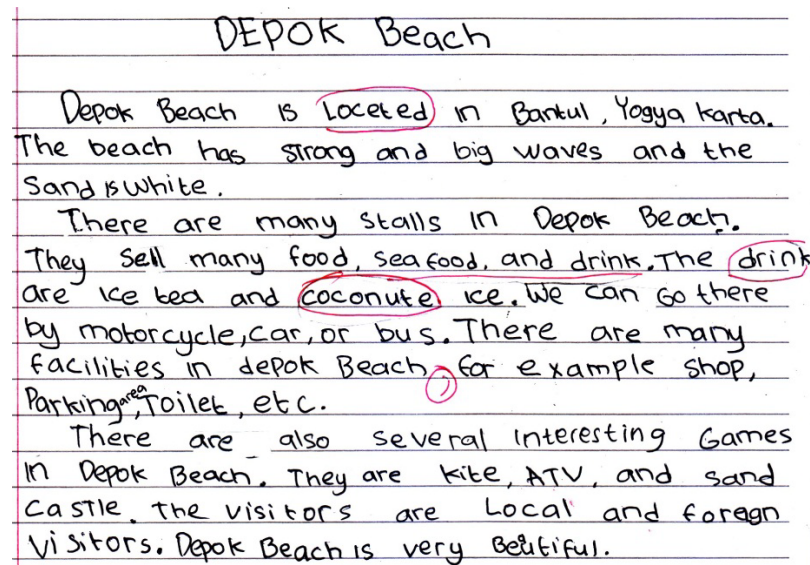 DEPOK Beach
Depok Beach is Loceted in Bantul, Yogya karta.
The beach has strong and big waves and the
Sand is white.
There are many stalls in Depok Beach.
They Sell many food, sea food, and drink. The drink
are ice tea and coconute ice. We can Go there
by motorcycle, car, or bus. There are many
facilities in depok Beach, for example shop,
Parking area, Toilet, etc.
There are also several interesting Games
in Depok Beach. They are kite, ATV, and sand
castle. the visitors are Local and foregn
visitors. Depok Beach is very Beutiful.